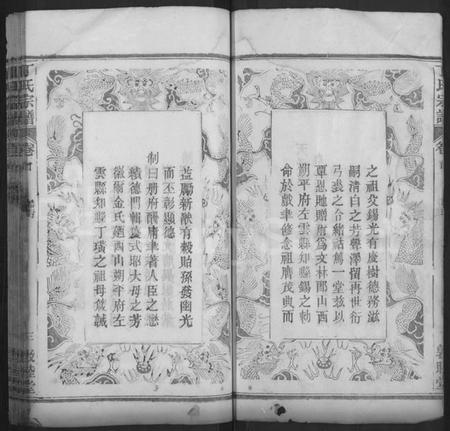 丁氏宗譜
卷首
之祖父錫光有慶樹德務滋
嗣清白之芳聲澤留再世衍
弓裘之令緒話篤一堂茲以
覃恩貤贈爾爲文林郎山西
朔平府左雲縣知縣錫之
命於戲聿修念祖膺茂典而
益勵新猷有穀貽孫發幽光
而丕彰顯德
制曰冊府酬庸聿著人臣之懋
績德門輯慶式昭大母之芳
徽爾金氏廼西山朔平府左
雲縣知縣丁璜之祖母箴誡
丁氏宗譜
卷首